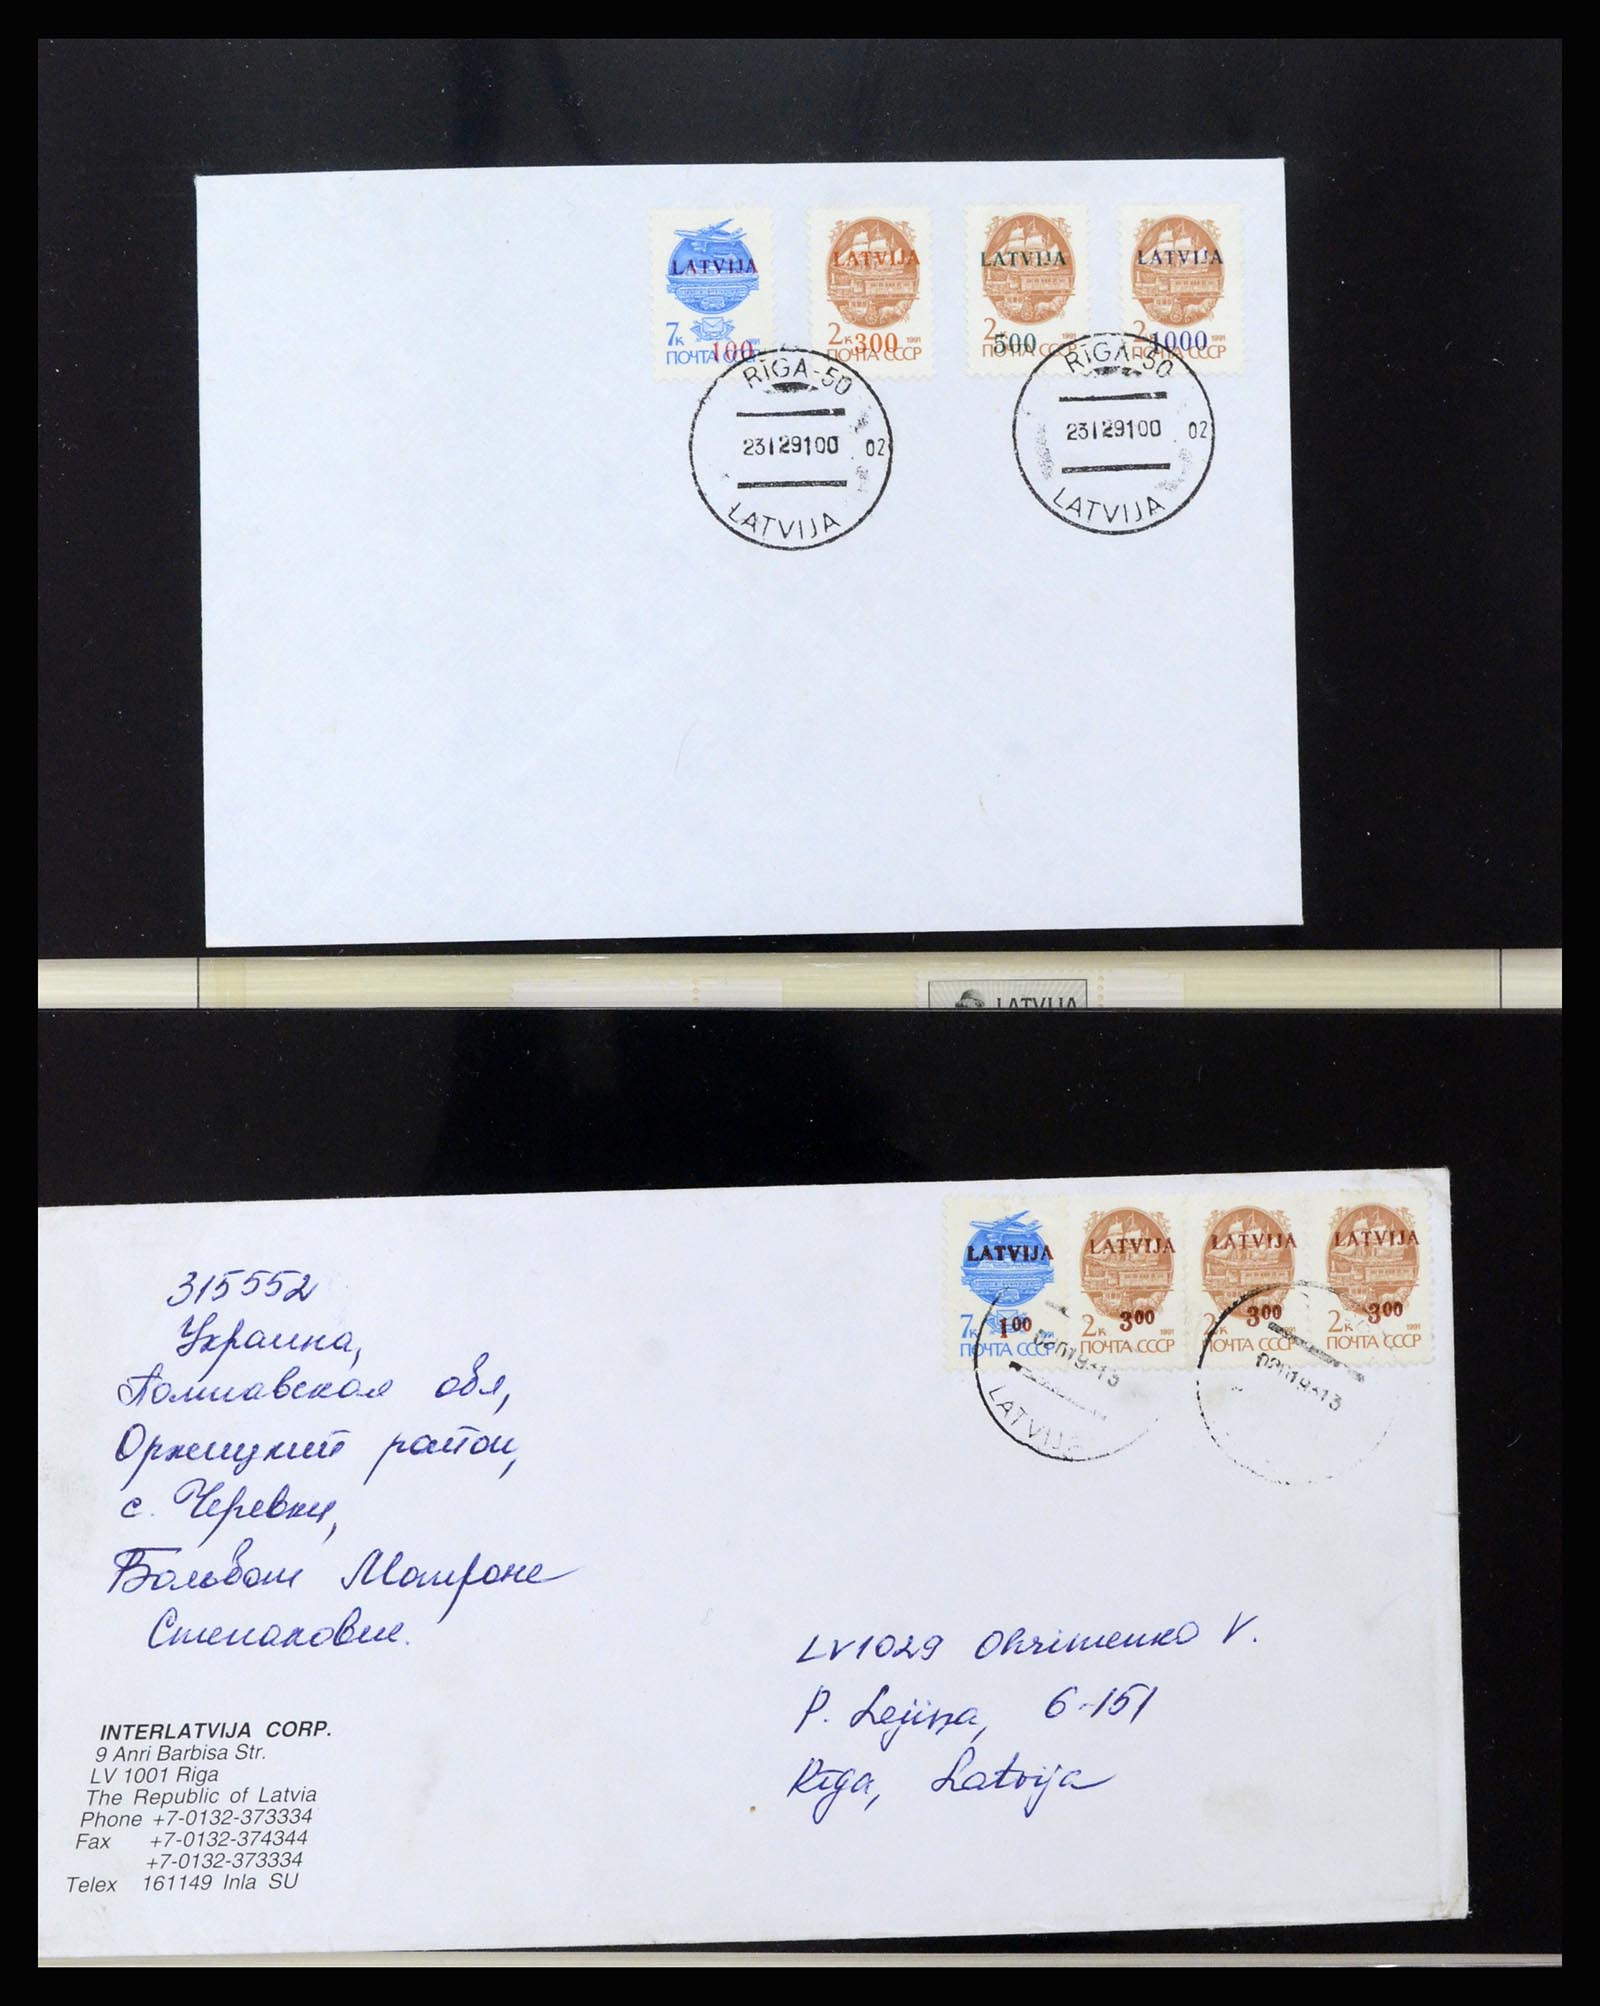 LATVIJA
7к 100
ПОЧТА СССР
LATVIJA
2к 300 1991
ПОЧТА СССР
LATVIJA
2к 500 1991
ПОЧТА СССР
LATVIJA
2к 1000 1991
ПОЧТА СССР
RĪGA-50
23129100 02
LATVIJA
RĪGA-50
23129100 02
LATVIJA
LATVIJA
LATVIJA
7к 1 00 1991
ПОЧТА СССР
LATVIJA
2к 3 00 1991
ПОЧТА СССР
LATVIJA
2к 3 00 1991
ПОЧТА СССР
LATVIJA
2к 3 00 1991
ПОЧТА СССР
LATVIJA
315552
Украина,
Полтавская обл,
Оржицкий район,
с. Черевки,
Больбат Матроне
Степановне.
LV1029 Ohrimenko V.
P. Lejiņa, 6-151
Rīga, Latvija
INTERLATVIJA CORP.
9 Anri Barbisa Str.
LV 1001 Riga
The Republic of Latvia
Phone +7-0132-373334
Fax +7-0132-374344
+7-0132-373334
Telex 161149 Inla SU